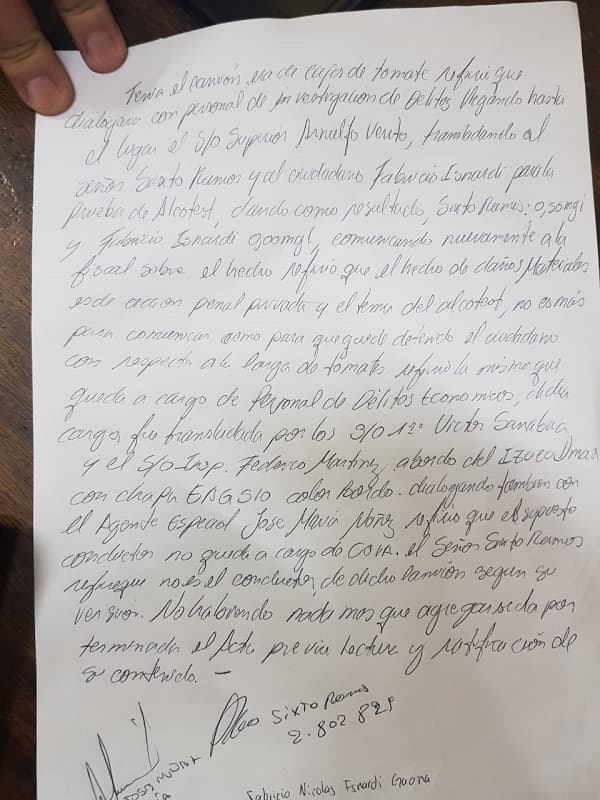 Tenia el camión era de cajas de tomate refirio que
dialogara con personal de investigacion de Delitos llegando hasta
el lugar el S/O Superior Arnulfo Verito, trasladando al
señor Sixto Ramos y al ciudadano Fabricio Isnardi para la
Prueba de Alcotest, dando como resultado, Sixto Ramos: 0,50mgl
y Fabricio Isnardi 0,00mgl, comunicando nuevamente a la
fiscal sobre el hecho refirio que el hecho de daños Materiales
es de accion penal privada y el tema del alcotest, no es más
para comunicar como para que quede detenido el ciudadano
con respecto a la carga de tomates refirio la misma que
queda a cargo de Personal de Delitos Economicos, dicha
carga fue transladada por los S/O 1º Victor Sanabria
y el S/O Insp. Federico Martinez, abordo del Izuzu Dmax
con chapa color Bordo. dialogando tambien con
el Agente Especial Jose Maria Nuñez refirio que el supuesto
conductor no queda a cargo de COIA. el Señor Sixto Ramos
refiere que no es el conductor, de dicho Camión segun su
version. No habiendo nada mas que agregar se da por
terminada el Acta previa lectura y ratificación de
su contenido. —
Sixto Ramos
2.802 829
Fabricio Nicolas Esnardi Gaona